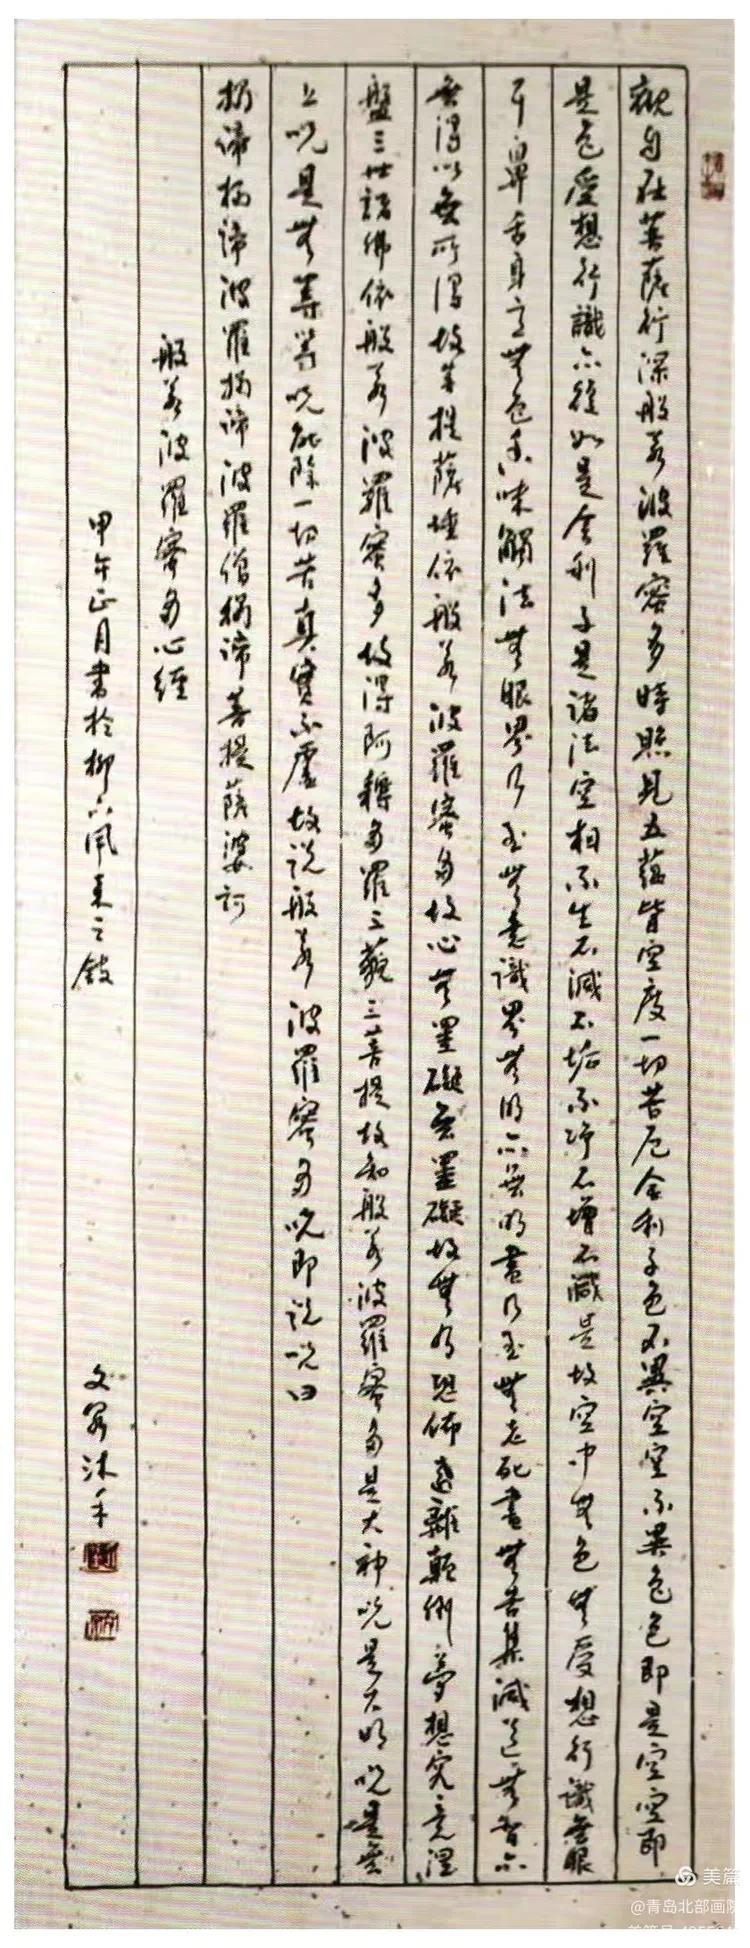 觀自在菩薩行深般若波羅密多時照見五蘊皆空度一切苦厄舍利子色不異空空不異色色即是空空即
是色受想行識亦復如是舍利子是諸法空相不生不滅不垢不淨不增不減是故空中無色無受想行識無眼
耳鼻舌身意無色香味觸法無眼界乃至無意識界無無明亦無明盡乃至無老死盡無苦集滅道無智亦
無得以無所得故菩提薩埵依般若波羅蜜多故心無罣礙無罣礙故無有恐怖遠離顛倒夢想究竟涅
盤三世諸佛依般若波羅蜜多故得阿耨多羅三藐三菩提故知般若波羅蜜多是大神咒是大明咒是無
上咒是無等等咒能除一切苦真實不虛故說般若波羅蜜多咒即說咒曰
揭諦揭諦波羅揭諦波羅僧揭諦菩提薩婆訶
般若波羅蜜多心經
甲午正月書於柳
美篇
@青岛北部画院